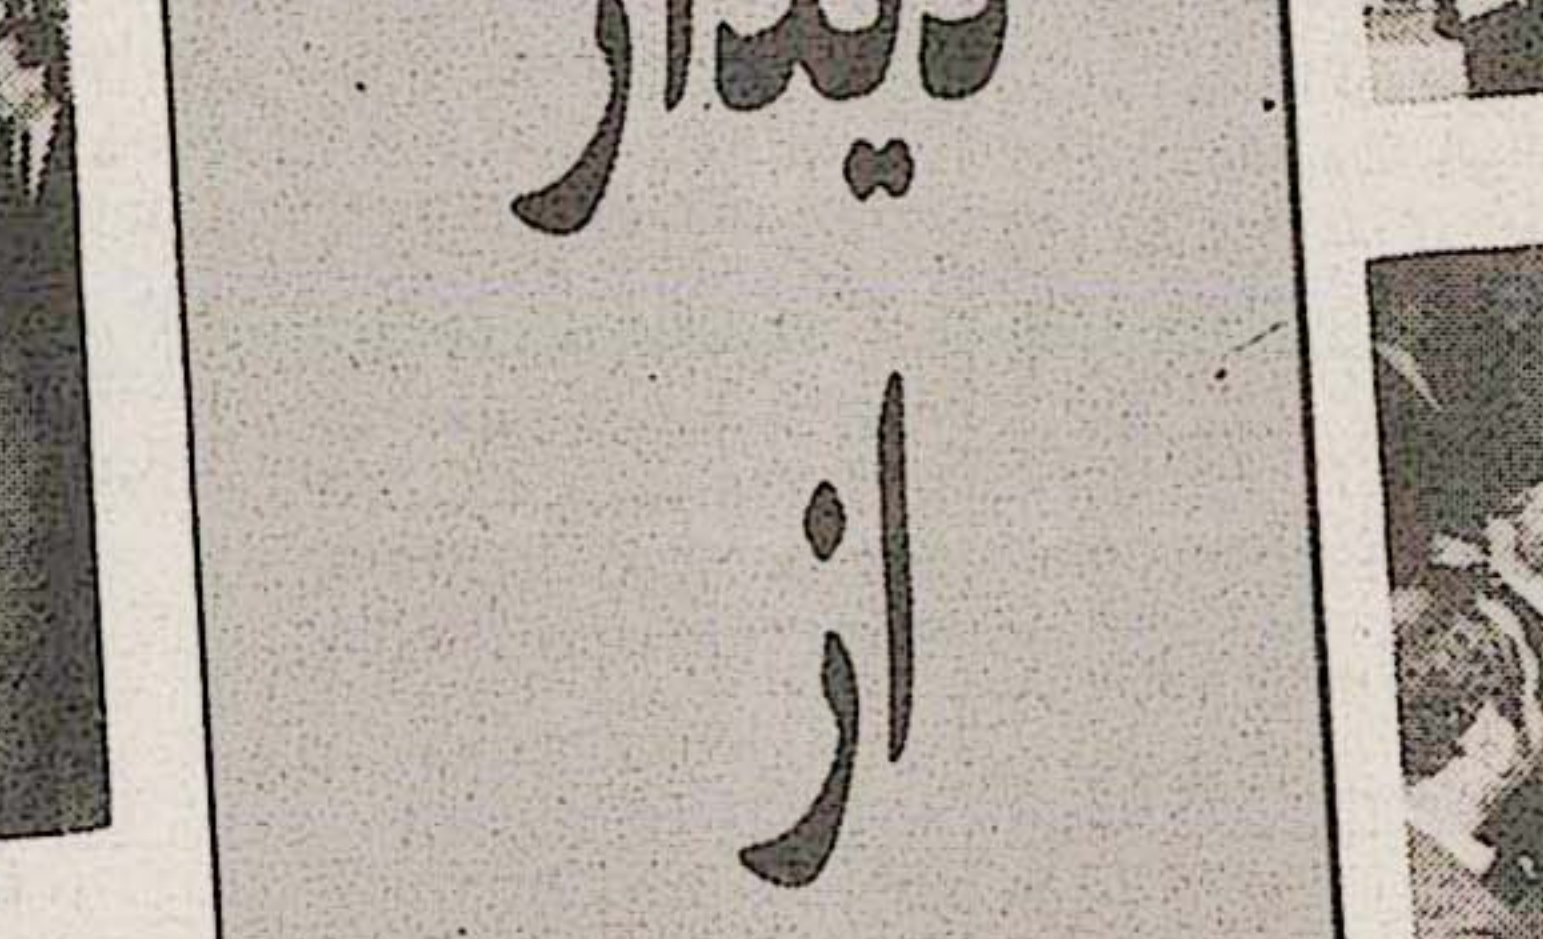 دیدار
از